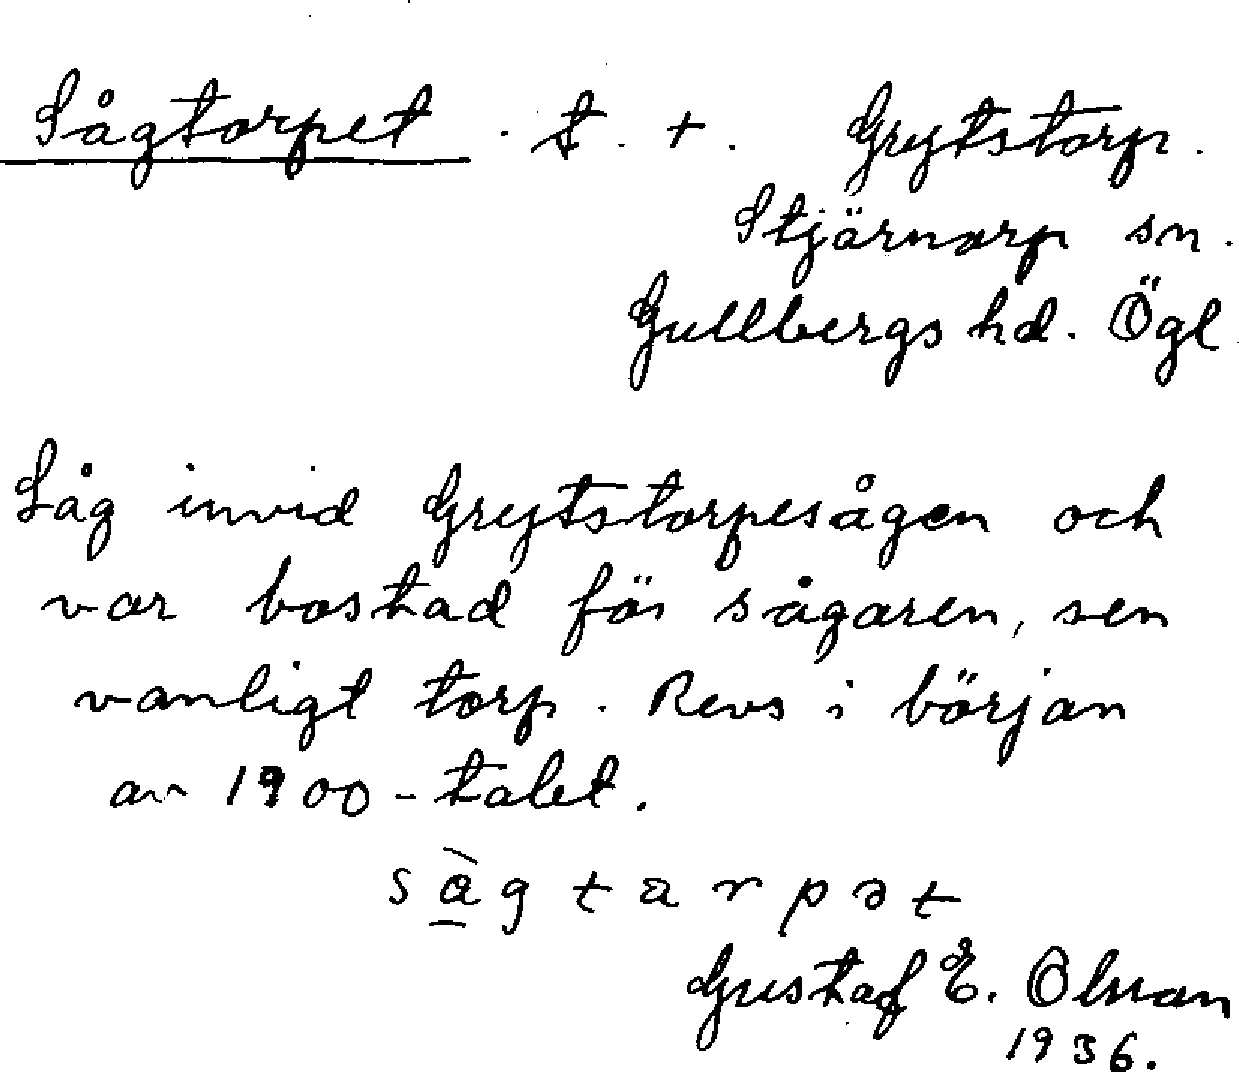 Sågtorpet . t. +. Grytstorp.
Stjärnorp sn.
Gullbergs hd. Ögl
Låg invid Grytstorpesågen och
var bostad för sågaren, sen
vanligt torp. Revs i början
av 1900-talet.
Gustaf E. Olsson
1936.